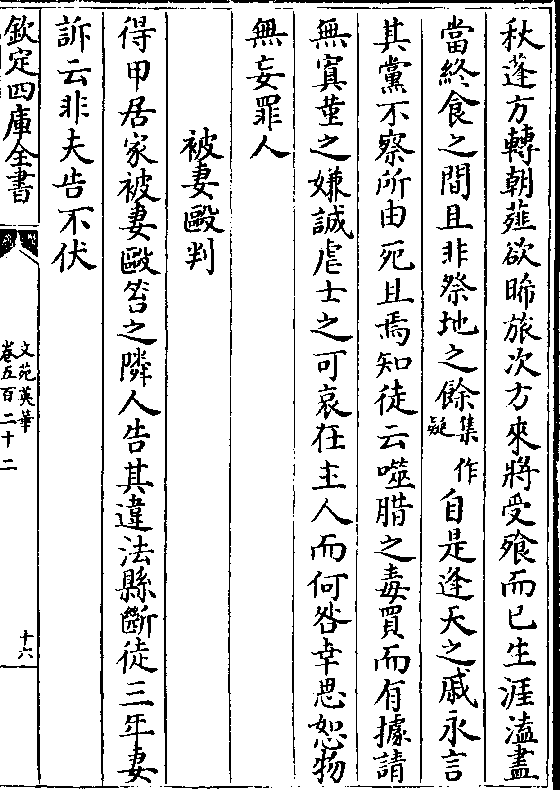 秋蓬方轉朝薤欲晞旅次方來將受飱而已生涯溘盡
當終食之間且非祭地之餘集作疑自是逢天之戚永言
其黨不察所由死且焉知徒云噬腊之毒買而有據請
無寘堇之嫌誠虐士之可哀在主人而何咎幸思恕物
無妄罪人
被妻毆判
得甲居家被妻毆笞之隣人告其違法縣斷徒三年妻
訴云非夫告不伏
欽定四庫全書
文苑英華
卷五百二十二
十六